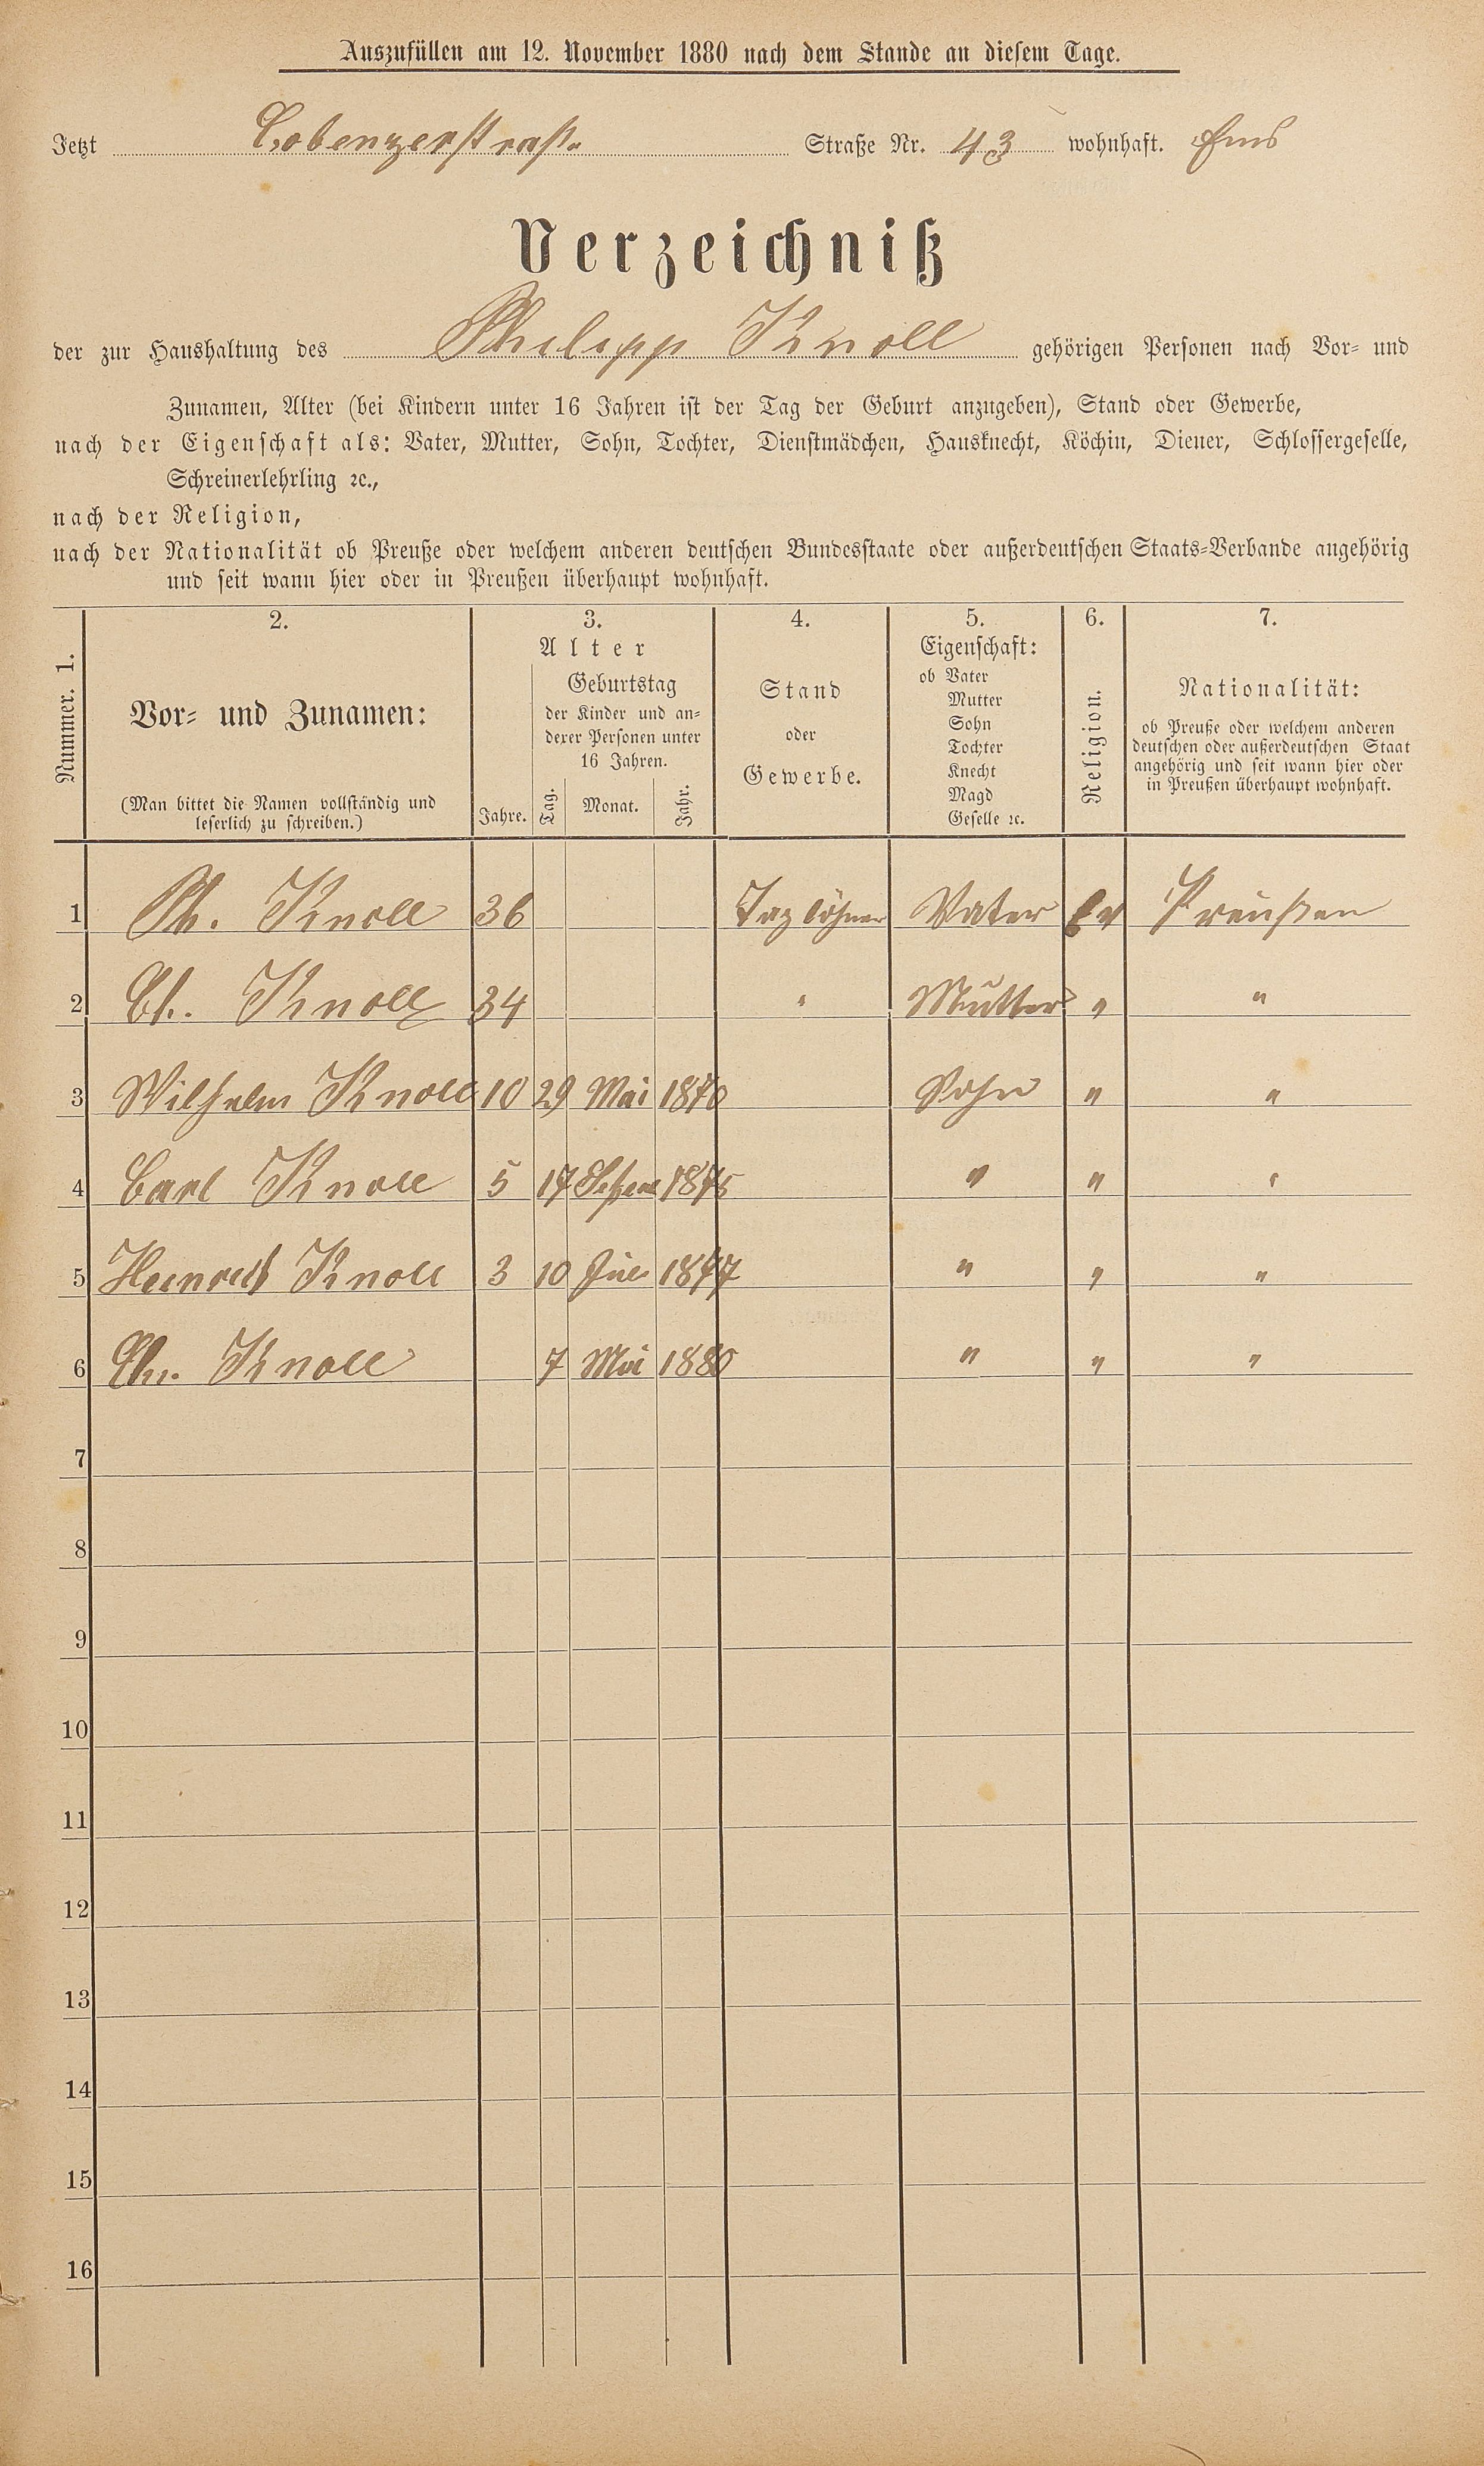 Auszufüllen am 12. November 1880 nach dem Stande an diesem Tage.
Jetzt Cobenzerstraße Straße Nr. 43 wohnhaft. Ems
Verzeichniß
der zur Haushaltung des Philipp Knoll gehörigen Personen nach Vor- und
Zunamen, Alter (bei Kindern unter 16 Jahren ist der Tag der Geburt anzugeben), Stand oder Gewerbe,
nach der Eigenschaft als: Vater, Mutter, Sohn, Tochter, Dienstmädchen, Hausknecht, Köchin, Diener, Schlossergeselle,
Schreinerlehrling ꝛc.,
nach der Religion,
nach der Nationalität ob Preuße oder welchem anderen deutschen Bundesstaate oder außerdeutschen Staats-Verbande angehörig
und seit wann hier oder in Preußen überhaupt wohnhaft.
Nummer. 1.
2.
Vor- und Zunamen:
(Man bittet die Namen vollständig und
leserlich zu schreiben.)
3.
Alter
Jahre.
Geburtstag
der Kinder und an-
derer Personen unter
16 Jahren.
Tag. Monat. Jahr.
4.
Stand
oder
Gewerbe.
5.
Eigenschaft:
ob Vater
Mutter
Sohn
Tochter
Knecht
Magd
Geselle ꝛc.
6.
Religion.
7.
Nationalität:
ob Preuße oder welchem anderen
deutschen oder außerdeutschen Staat
angehörig und seit wann hier oder
in Preußen überhaupt wohnhaft.
1 Ph. Knoll 36 Taglöhner Vater Ev Preußen
2 Ch. Knoll 34 " Mutter " "
3 Wilhelm Knoll 10 29 Mai 1870 Sohn " "
4 Carl Knoll 5 17 1875 " " "
5 Heinrich Knoll 3 10 1877 " " "
6 Chr. Knoll 7 Mai 1880 " " "
7
8
9
10
11
12
13
14
15
16